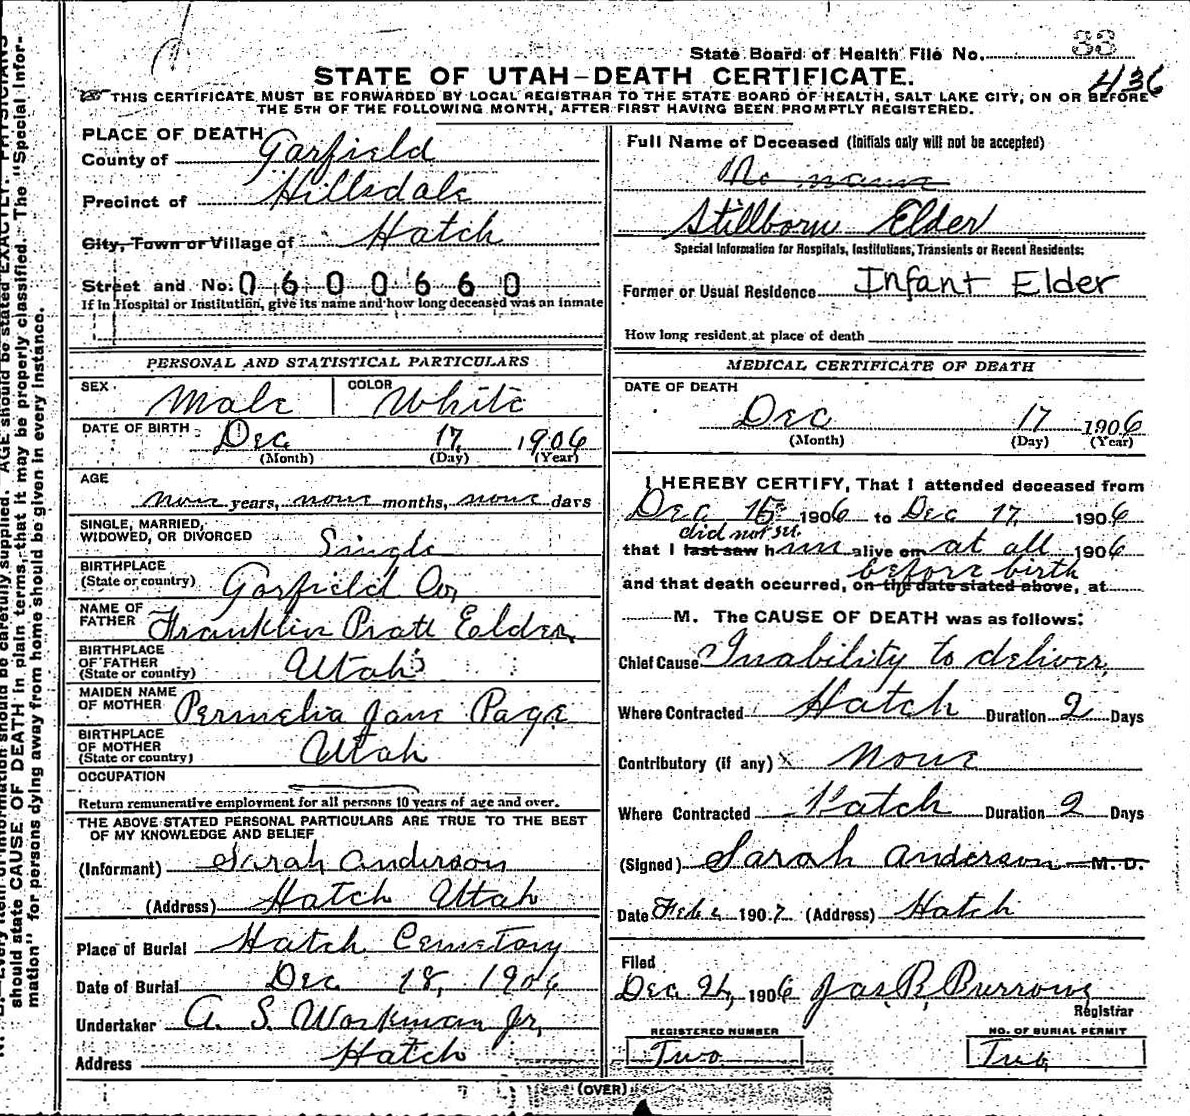 State Board of Health File No. 33
436
STATE OF UTAH—DEATH CERTIFICATE.
THIS CERTIFICATE MUST BE FORWARDED BY LOCAL REGISTRAR TO THE STATE BOARD OF HEALTH, SALT LAKE CITY, ON OR BEFORE
THE 5TH OF THE FOLLOWING MONTH, AFTER FIRST HAVING BEEN PROMPTLY REGISTERED.
PLACE OF DEATH
County of Garfield
Precinct of Hillsdale
City, Town or Village of Hatch
Street and No. 0600660
If in Hospital or Institution, give its name and how long deceased was an inmate
PERSONAL AND STATISTICAL PARTICULARS
SEX Male COLOR White
DATE OF BIRTH Dec 17 1906
(Month) (Day) (Year)
AGE
none years, none months, none days
SINGLE, MARRIED,
WIDOWED, OR DIVORCED Single
BIRTHPLACE
(State or country) Garfield Co,
NAME OF
FATHER Franklin Pratt Elder,
BIRTHPLACE
OF FATHER
(State or country) Utah
MAIDEN NAME
OF MOTHER Permelia Jane Page
BIRTHPLACE
OF MOTHER
(State or country) Utah
OCCUPATION
Return remunerative employment for all persons 10 years of age and over.
THE ABOVE STATED PERSONAL PARTICULARS ARE TRUE TO THE BEST
OF MY KNOWLEDGE AND BELIEF
(Informant) Sarah Anderson
(Address) Hatch Utah
Place of Burial Hatch Cemetory
Date of Burial Dec 18, 1906
Undertaker A. S. Workman Jr,
Address Hatch
Full Name of Deceased (Initials only will not be accepted)
No name
Stillborn Elder
Special Information for Hospitals, Institutions, Transients or Recent Residents:
Former or Usual Residence Infant Elder
How long resident at place of death
MEDICAL CERTIFICATE OF DEATH
DATE OF DEATH
Dec 17 1906
(Month) (Day) (Year)
I HEREBY CERTIFY, That I attended deceased from
Dec 15 1906 to Dec 17, 1906
did not see
that I last saw him alive on at all 1906
before birth
and that death occurred, on the date stated above, at
M. The CAUSE OF DEATH was as follows:
Chief Cause Inability to deliver,
Where Contracted Hatch Duration 2 Days
Contributory (if any) None
Where Contracted Hatch Duration 2 Days
(Signed) Sarah Anderson M. D.
Date Feb 1907 (Address) Hatch
Filed
Dec 1906 Jas. B. Burrows
Registrar
REGISTERED NUMBER
Two
NO. OF BURIAL PERMIT
Two
(OVER)
should state CAUSE OF DEATH in plain terms, that it may be properly classified. The "Special Infor-
mation" for persons dying away from home should be given in every instance.